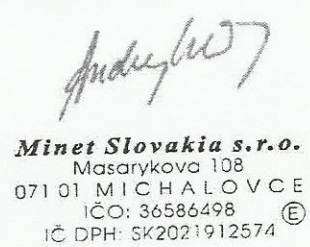 Minet Slovakia s.r.o.
Masarykova 108
071 01 MICHALOVCE
IČO: 36586498 Ⓔ
IČ DPH: SK2021912574